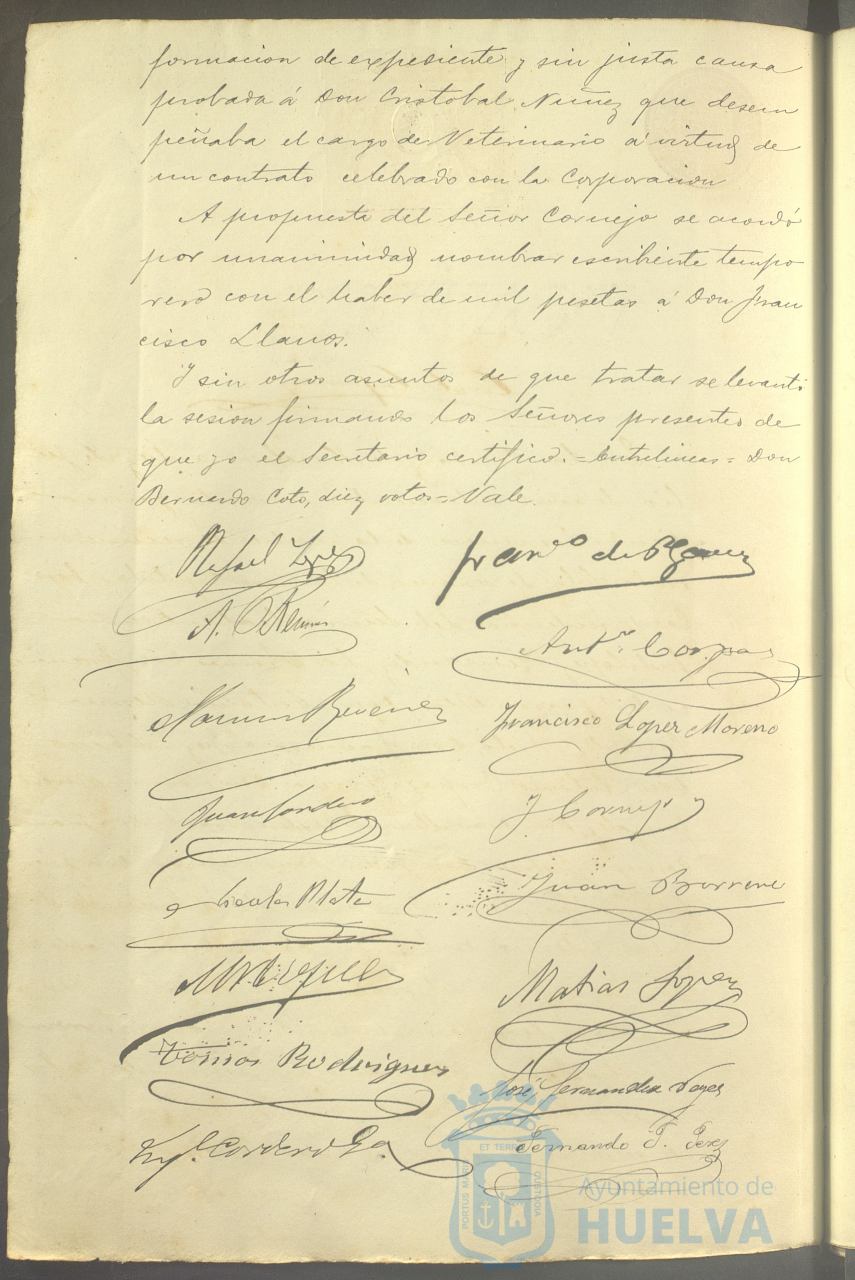 formacion de expediente y sin justa causa
probada á Don Cristobal Nuñez que desem
peñaba el cargo de Veterinario á virtud de
un contrato celebrado con la Corporacion
A propuesta del Señor Cornejo se acordó
por unanimidad nombrar escribiente tempo
rero con el haber de mil pesetas á Don Fran
cisco Llanos.
Y sin otros asuntos de que tratar se levantó
la sesion firmando los Señores presentes de
que yo el Secretario certifico. = Entrelineas = Don
Bernardo Coto, diez votos = Vale.
Rafael Lopez
Franco de P.
A.
Antº Corpas
Francisco Lopez Moreno
Juan Cordero
J. Cornejo
Juan Borrero
Nicolas Plata
Matias Lopez
Tomas Rodriguez
José Fernandez
Cordero Ga.
Fernando F. Perez
PORTUS MARIS ET TERRAE CUSTODIA
Ayuntamiento de
HUELVA